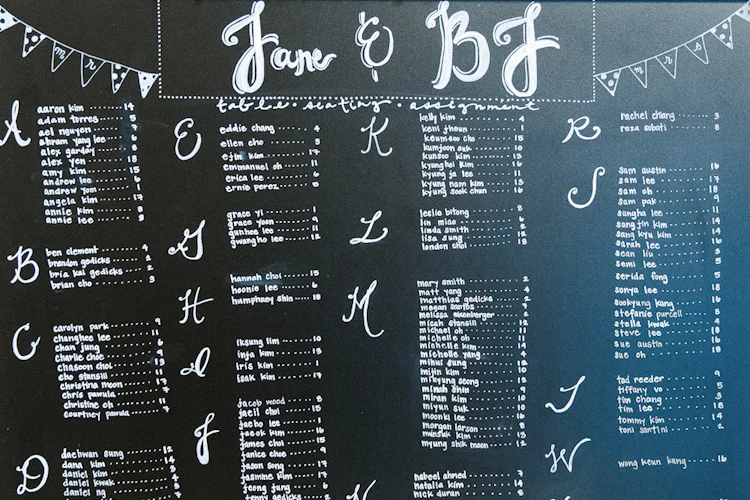 Jane & BJ
table seating assignment
mr
mr
A
aaron kim 14
adam torres 5
ael nguyen 7
ahram yang lee 6
alex garday
alex yon 18
amy kim 15
andrew lee 6
andrew yom 1
angela kim 17
annie kim
annie lee
B
ben clement 4
brandon gedicks 2
bria kai gedicks 2
brian cho 3
C
carolyn park
changhee lee 11
chan jung
charlie choe 9
chasoon choi 13
cho stansill
christina moon 17
chris pamula 7
christine oh 11
courtney pamula 7
D
daehwan sung 12
dana kim
daniel kim
daniel kwak
daniel ng
E
eddie chang 4
ellen cho 3
ejin kim 17
emmanuel oh 11
erica lee 6
ernie perez 5
G
grace yi 1
grace yoon 9
gunhee lee 11
gwangho lee 12
H
hannah choi 15
hoonie lee 6
humphrey shin 18
I
iksung lim 10
inja kim 13
iris kim 1
isak kim 17
J
jacob wood 8
jaeil choi 15
jaeho lee 1
jaeok kim 16
james choi 15
janice choe 9
jason song 17
jasmine kim 17
jeong jung
jenny gedicks 2
K
kelly kim 4
keni jheun 1
keumsoo cho 15
kumjoon suk 10
kunsoo kim 13
kyunghoi kim 16
kyung ja lee 11
kyung nam kim 13
kyung sook chun 16
L
leslie bitong 8
lin miao 6
linda smith 2
lisa sung 12
london choi 18
M
mary smith 2
matt yang 4
matthias gedicks 2
megan santos 7
melissa eixenberger 2
micah stansill 12
michael oh 11
michelle oh 11
michelle kim 14
michelle yang 4
mihui sung 12
mijin kim 10
mikyung seong 12
minah shin 9
miran kim 10
miyun suk 10
moonki lee 16
morgan larson 8
munsuk kim 13
myung shik moon 12
N
nabeel ahmed 7
natalia kim 14
nick duran 8
R
rachel chiang 3
reza sobati 8
S
sam austin 16
sam lee 17
sam oh 18
sam pak 9
sangha lee 11
sangjin kim 14
sang kyu kim 14
sarah lee 16
sean liu 5
semi lee 5
serida fong 5
sonya lee 18
sookyung kang 16
stefanie purcell 8
stella kwak 4
steve lee 18
sue austin 16
sue oh 18
T
tad reeder 9
tiffany vo 5
tim chang 3
tim lee 18
tommy kim 14
toni santini 2
W
wong keun kang 16